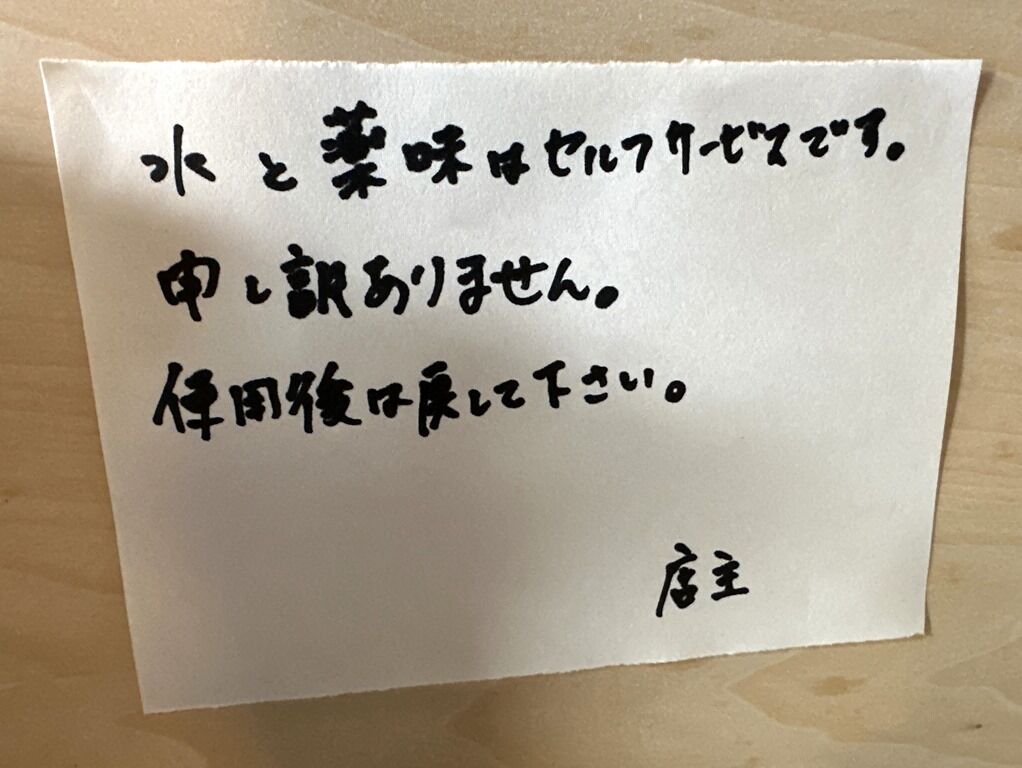 水と薬味はセルフサービスです。
申し訳ありません。
使用後は戻して下さい。
店主